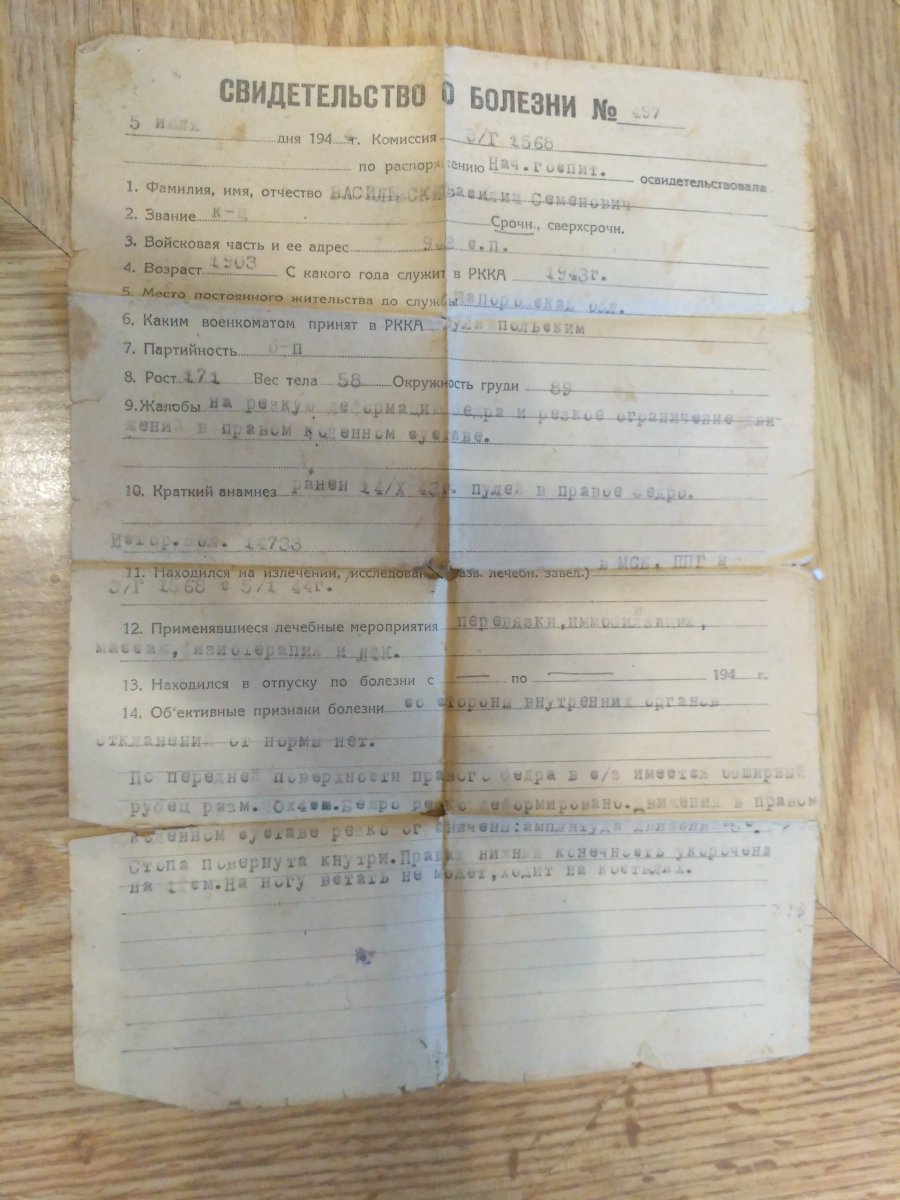 СВИДЕТЕЛЬСТВО О БОЛЕЗНИ № 497
5 июля дня 194 г. Комиссия Э/Г 1568
по распоряжению Нач. госпит. освидетельствовала
1. Фамилия, имя, отчество ВАСИЛЬСКИЙ Василий Семенович
2. Звание к-ц Срочн., сверхсрочн.
3. Войсковая часть и ее адрес с.п.
4. Возраст 1903 С какого года служит в РККА 1943г.
5. Место постоянного жительства до службы Запорожская обл.
6. Каким военкоматом принят в РККА Гуляйпольским
7. Партийность б-п
8. Рост 171 Вес тела 58 Окружность груди 89
9. Жалобы на резкую деформацию бедра и резкое ограничение дви-
жений в правом коленном суставе.
10. Краткий анамнез ранен 14/X 43г. пулей в правое бедро.
Истор. бол. 14733
11. Находился на излечении, исследовании (назв. лечебн. завед.) в МСБ, ППГ и
Э/Г 1568 с 5/1 44г.
12. Применявшиеся лечебные мероприятия перевязки, иммобилизация,
массаж, физиотерапия и ЛФК.
13. Находился в отпуску по болезни с — по — 194 г.
14. Об'ективные признаки болезни со стороны внутренних органов
отклонений от нормы нет.
По передней поверхности правого бедра в с/з имеется обширный
рубец разм. 0х4см. Бедро резко деформировано. Движения в правом
коленном суставе резко ограничены: амплитуда движений
Стопа повернута кнутри. Правая нижняя конечность укорочена
на см. На ногу встать не может, ходит на костылях.